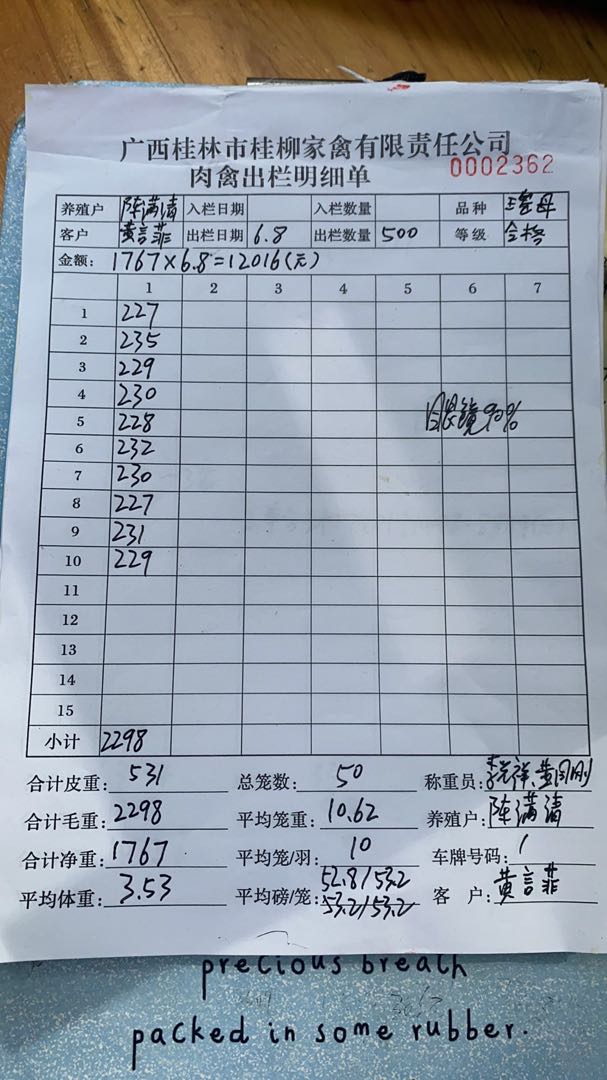 广西桂林市桂柳家禽有限责任公司
肉禽出栏明细单 0002362
养殖户 陈满清 入栏日期 入栏数量 品种
客户 黄言菲 出栏日期 6.8 出栏数量 500 等级 合格
金额: 1767×6.8=12016(元)
1 2 3 4 5 6 7
1 227
2 235
3 229
4 230
5 228 眼镜90%
6 232
7 230
8 227
9 231
10 229
11
12
13
14
15
小计 2298
合计皮重: 531 总笼数: 50 称重员:
合计毛重: 2298 平均笼重: 10.62 养殖户: 陈满清
合计净重: 1767 平均笼/羽: 10 车牌号码: 1
平均体重: 3.53 平均磅/笼: 52.8/53.2 客 户: 黄言菲
53.2/53.2
precious breath
packed in some rubber.